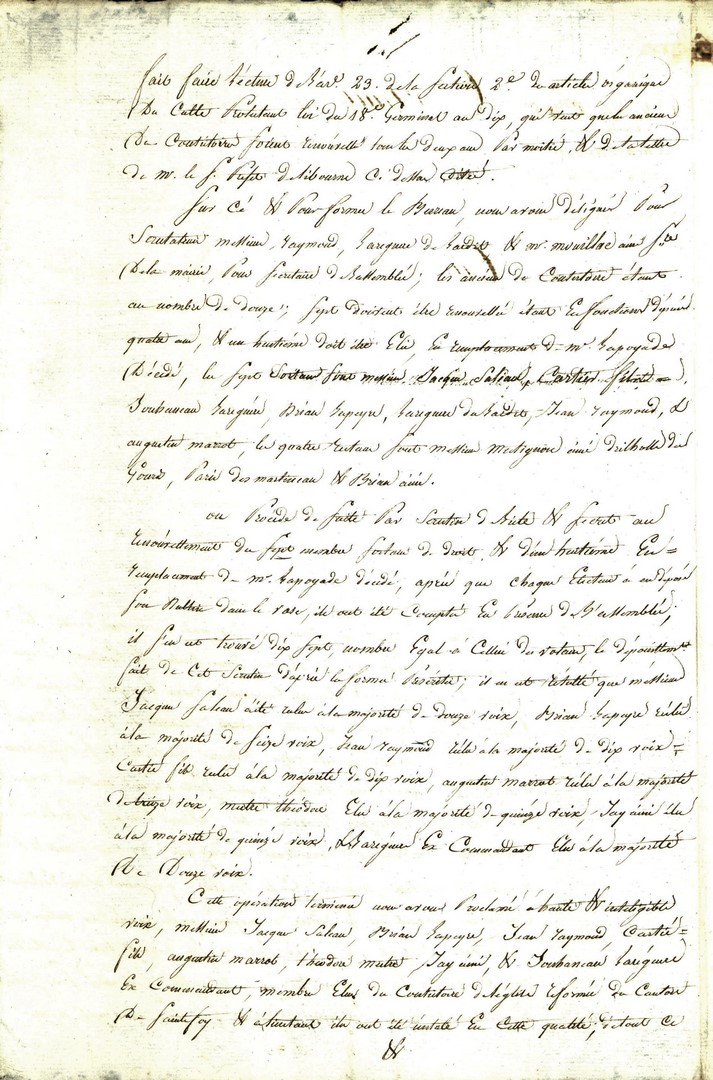 fait faire lecture de l'art. 23. de la section 2e du article organique
Du Culte Protestant loi du 18e Germinal an dix, qui veut que les anciens
Du Consistoire soient renouvellé tous les deux ans Par moitié, & de la lettre
de mr. le s. Préfet de Libourne Ci dessus
Sur Cé & Pour former le Bureau nous avons désigné Pour
Scrutateur messieurs Raymond, Laregnere de & mr.
De la mairie, Pour secretaire de l'assemblée; les anciens du Consistoire étant
au nombre de douze; sept doivent être renouvellé étant En fonctions dépuis
quatre ans, & un huitiéme doit être Elu, En remplacement de mr. Lapoyade
Décédé, les sept Sortans sont messieurs Jacques Saleau, Cartier fils
Jouhaneau Laregnere, Brian Lapeyre, Laregnere, Jean Raymond, &
augustin marrot, les quatre restans sont messieurs ainé
Paris des martureau & Brian ainé.
on Procéde de suite Par Scrutin & secret au
renouvellement des sept membres sortans de droit, & d'un huitiéme En =
remplacement de mr. Lapoyade décédé, aprés que chaque Electeur à eu déposé
son Bulletin dans le vase, ils ont été Compté En Présence de l'assemblée;
il s'en est trouvé dix sept, nombre Egal à Cellui des votans, le dépouillemt
fait de Cet Scrutin d'aprés la forme Préscrite; il en est résulté que méssieurs
Jacques Saleau à été réelu à la majorité de douze voix, Brian Lapeyre réélu
à la majorité de seize voix, Jean Raymond réélu à la majorité de dix voix =
Cartier fils réélu à la majorité de dix voix, augustin marrot réélu à la majorité
de treize voix, mestre théodore Elu à la majorité de quinze voix, Jay ainé élu
à la majorité de quinze voix, & Laregnere Ex Commandant Elu à la majorité
De Douze voix.
Cette opération terminée nous avons Proclamé à haute & intelegible
voix, messieurs Jacques Saleau, Brian Lapeyre, Jean Raymond, Cartier =
fils, augustin marrot, théodore mestre, Jay ainé, & Jouhaneau Laregnere
Ex Commandant, membres Elus du Consistoire de l'église réformée du Canton
De Sainte foy & à l'instant ils ont été installé En Cette qualité; de tout Ce
&